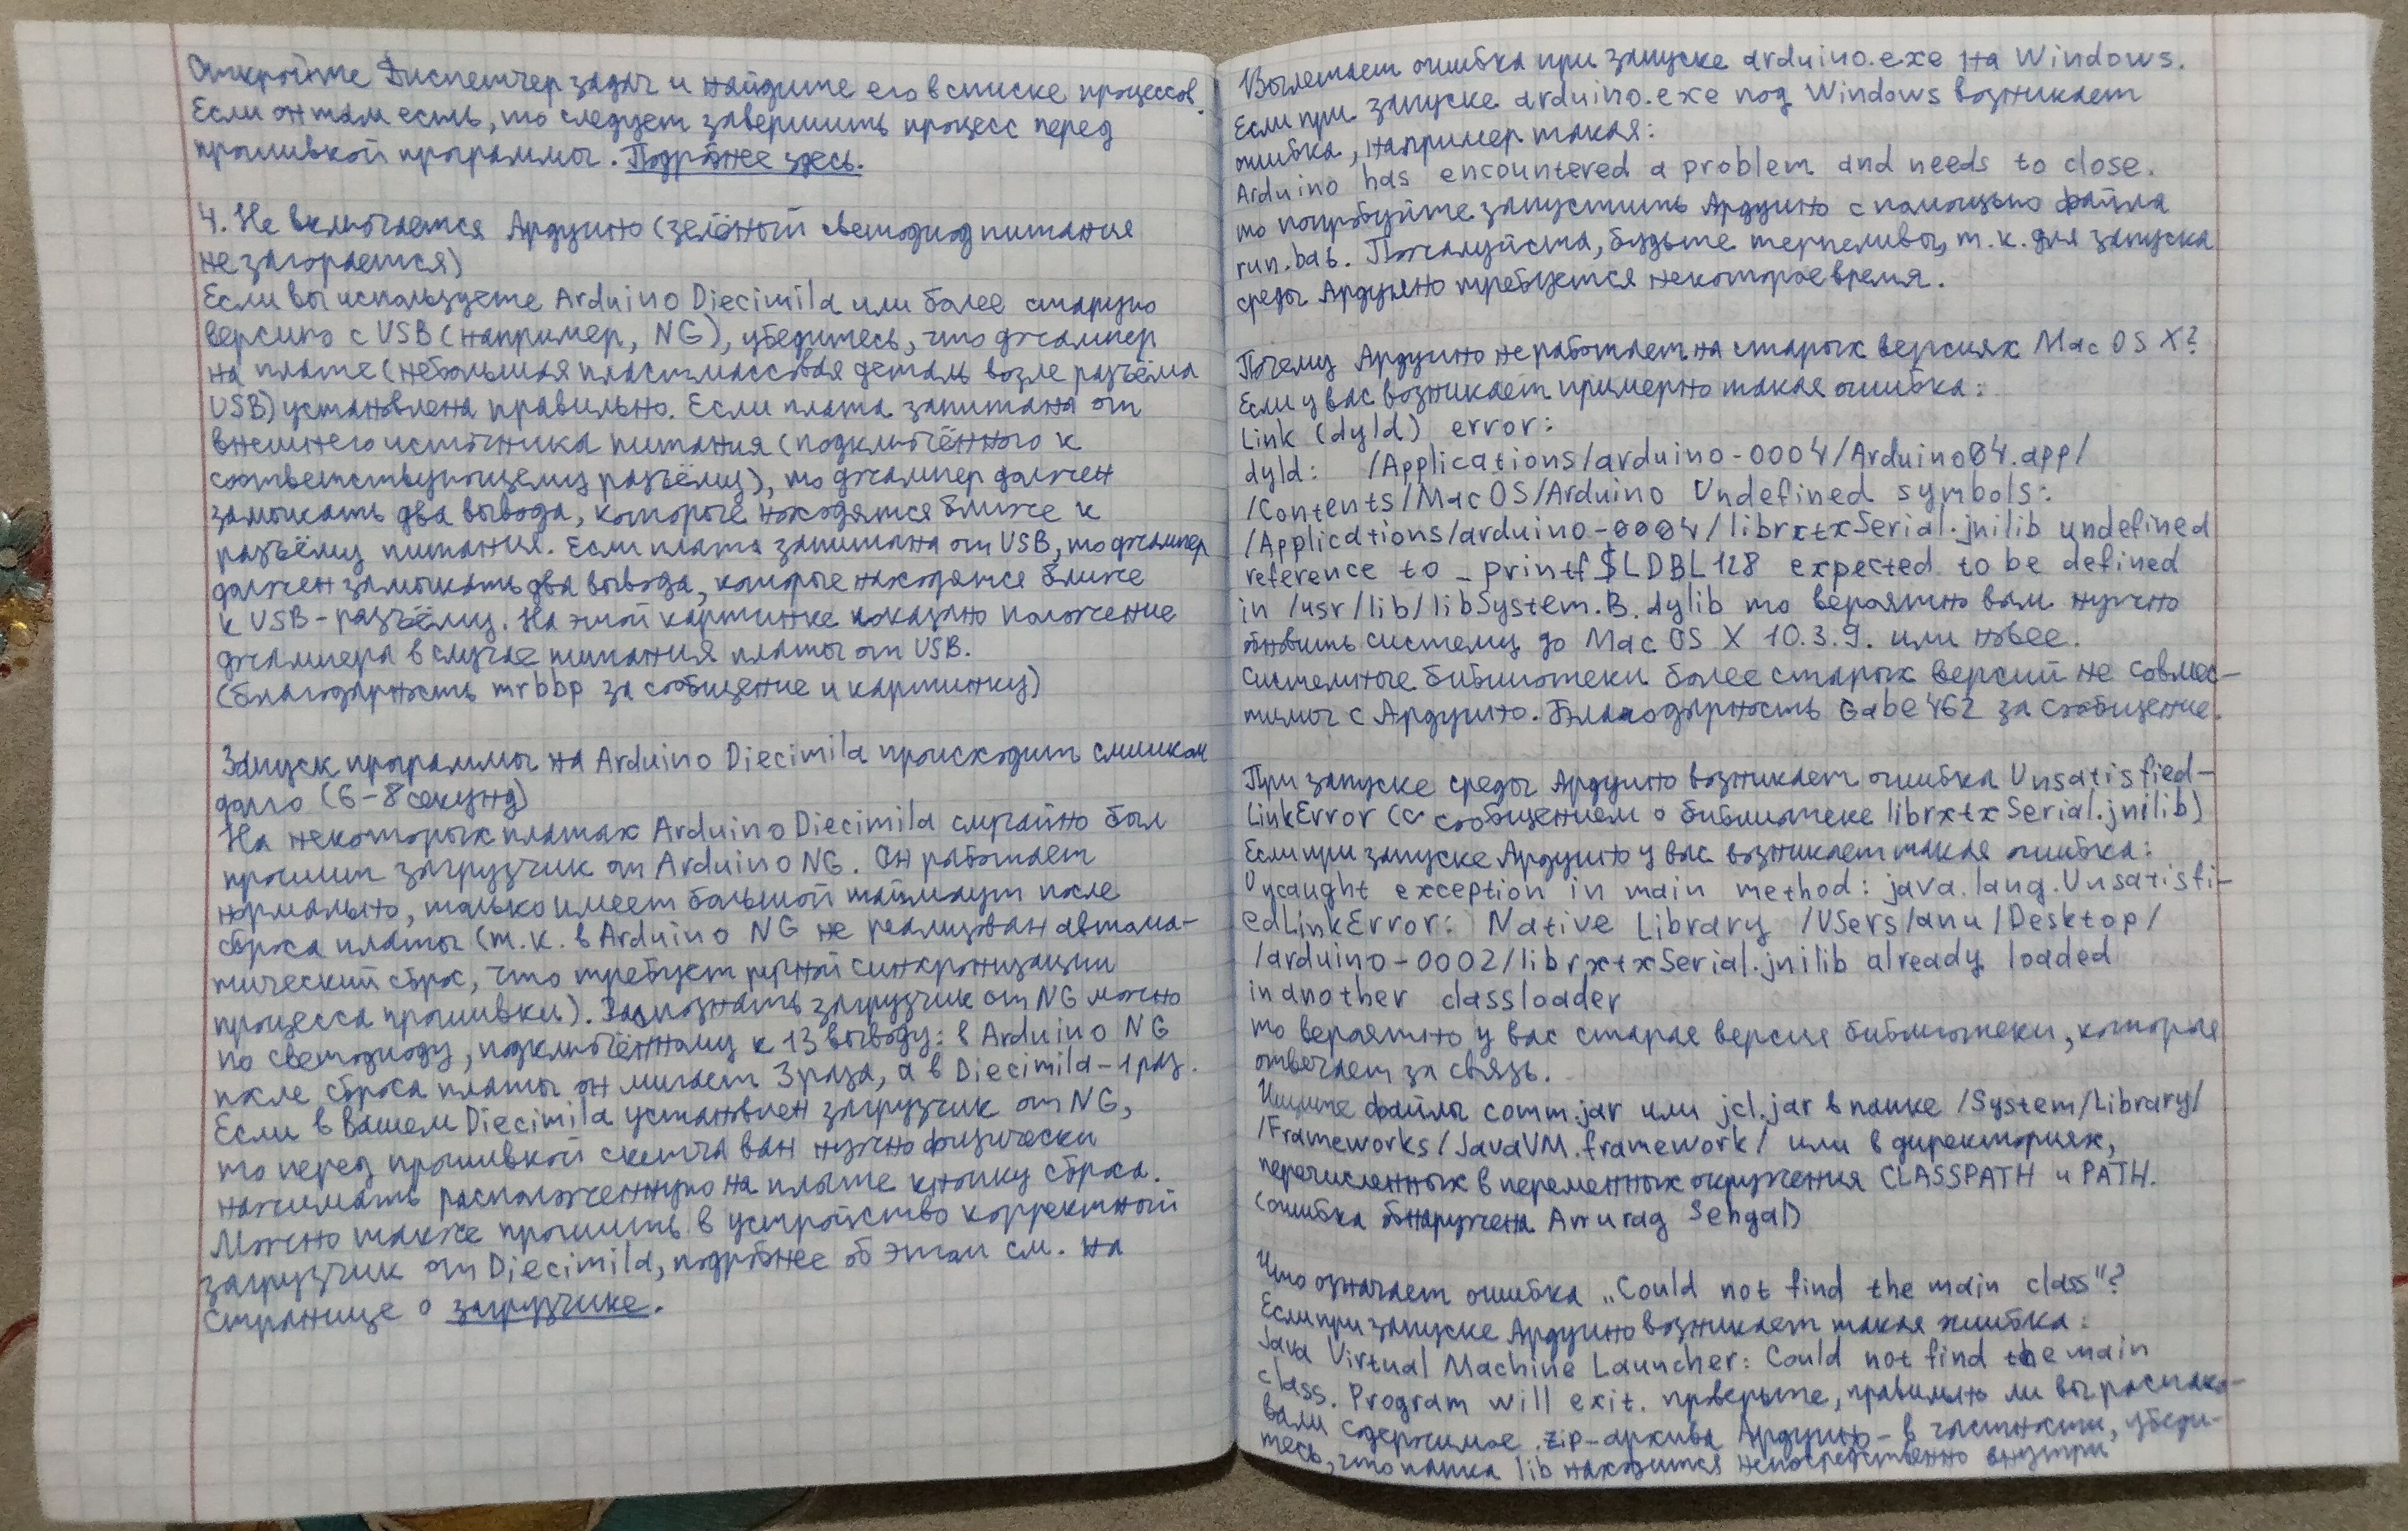 Откройте Диспетчер задач и найдите его в списке процессов.
Если он там есть, то следует завершить процесс перед
прошивкой программы. Подробнее здесь.
4. Не включается Ардуино (зелёный светодиод питания
не загорается)
Если вы используете Arduino Diecimila или более старую
версию с USB (например, NG), убедитесь, что джампер
на плате (небольшая пластмассовая деталь возле разъёма
USB) установлена правильно. Если плата запитана от
внешнего источника питания (подключённого к
соответствующему разъёму), то джампер должен
замыкать два вывода, которые находятся ближе к
разъёму питания. Если плата запитана от USB, то джампер
должен замыкать два вывода, которые находятся ближе
к USB-разъёму. На этой картинке показано положение
джампера в случае питания платы от USB.
(благодарность mrbbp за сообщение и картинку)
Запуск программы на Arduino Diecimila происходит слишком
долго (6-8 секунд)
На некоторых платах Arduino Diecimila случайно был
прошит загрузчик от Arduino NG. Он работает
нормально, только имеет большой таймаут после
сброса платы (т.к. в Arduino NG не реализован автома-
тический сброс, что требует ручной синхронизации
процесса прошивки). Распознать загрузчик от NG можно
по светодиоду, подключённому к 13 выводу: в Arduino NG
после сброса платы он мигает 3 раза, а в Diecimila-1 раз.
Если в Вашем Diecimila установлен загрузчик от NG,
то перед прошивкой скетча вам нужно физически
нажимать расположенную на плате кнопку сброса.
Можно также прошить в устройство корректный
загрузчик от Diecimila, подробнее об этом см. на
странице о загрузчике.
Вылетает ошибка при запуске arduino.exe на Windows.
Если при запуске arduino.exe под Windows возникает
ошибка, например такая:
Arduino has encountered a problem and needs to close.
то попробуйте запустить Ардуино с помощью файла
run.bat. Пожалуйста, будьте терпеливы, т.к. для запуска
среды Ардуино требуется некоторое время.
Почему Ардуино не работает на старых версиях Mac OS X?
Если у вас возникает примерно такая ошибка:
Link (dyld) error:
dyld: /Applications/arduino-0004/Arduino04.app/
/Contents/MacOS/Arduino Undefined symbols:
/Applications/arduino-0004/librxtxSerial.jnilib undefined
reference to _printf$LDBL128 expected to be defined
in /usr/lib/libSystem.B.dylib то вероятно вам нужно
обновить систему до Mac OS X 10.3.9. или новее.
Системные библиотеки более старых версий не совмес-
тимы с Ардуино. Благодарность Gabe462 за сообщение.
При запуске среды Ардуино возникает ошибка Unsatisfied-
LinkError (с сообщением о библиотеке librxtxSerial.jnilib)
Если при запуске Ардуино у вас возникает такая ошибка:
Uncaught exception in main method: java.lang.Unsatisfi-
edLinkError: Native Library /Users/anu/Desktop/
/arduino-0002/librxtxSerial.jnilib already loaded
in another classloader
то вероятно у вас старая версия библиотеки, которая
отвечает за связь.
Ищите файлы comm.jar или jcl.jar в папке /System/Library/
/Frameworks/JavaVM.framework/ или в директориях,
перечисленных в переменных окружения CLASSPATH и PATH.
(ошибка обнаружена Anurag Sehgal)
Что означает ошибка „Could not find the main class"?
Если при запуске Ардуино возникает такая ошибка:
Java Virtual Machine Launcher: Could not find the main
class. Program will exit. проверьте, правильно ли вы распако-
вали содержимое .zip-архива Ардуино - в частности, убеди-
тесь, что папка lib находится непосредственно внутри